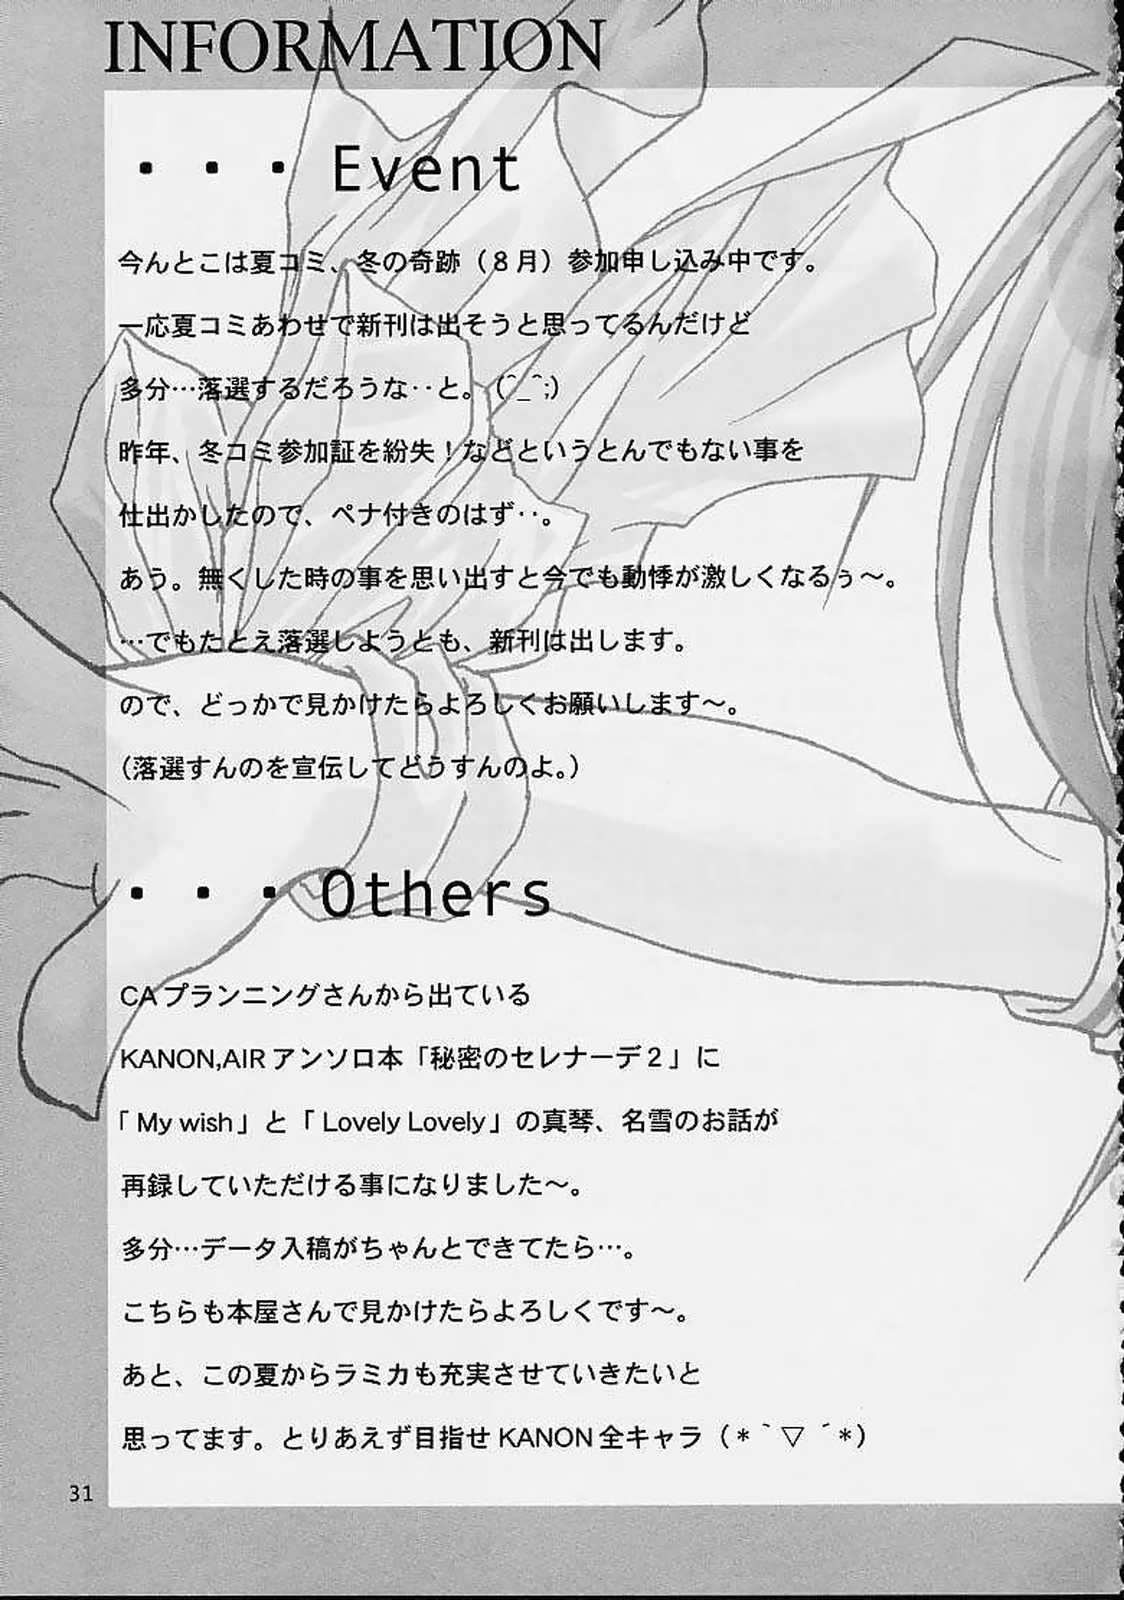 INFORMATION
・・・Event
今んとこは夏コミ、冬の奇跡（８月）参加申し込み中です。
一応夏コミあわせで新刊は出そうと思ってるんだけど
多分…落選するだろうな‥と。(^_^;)
昨年、冬コミ参加証を紛失！などというとんでもない事を
仕出かしたので、ペナ付きのはず‥。
あう。無くした時の事を思い出すと今でも動悸が激しくなるぅ〜。
…でもたとえ落選しようとも、新刊は出します。
ので、どっかで見かけたらよろしくお願いします〜。
（落選すんのを宣伝してどうすんのよ。）
・・・Others
CAプランニングさんから出ている
KANON,AIRアンソロ本「秘密のセレナーデ２」に
「My wish」と「Lovely Lovely」の真琴、名雪のお話が
再録していただける事になりました〜。
多分…データ入稿がちゃんとできてたら…。
こちらも本屋さんで見かけたらよろしくです〜。
あと、この夏からラミカも充実させていきたいと
思ってます。とりあえず目指せKANON全キャラ（＊｀▽´＊）
31